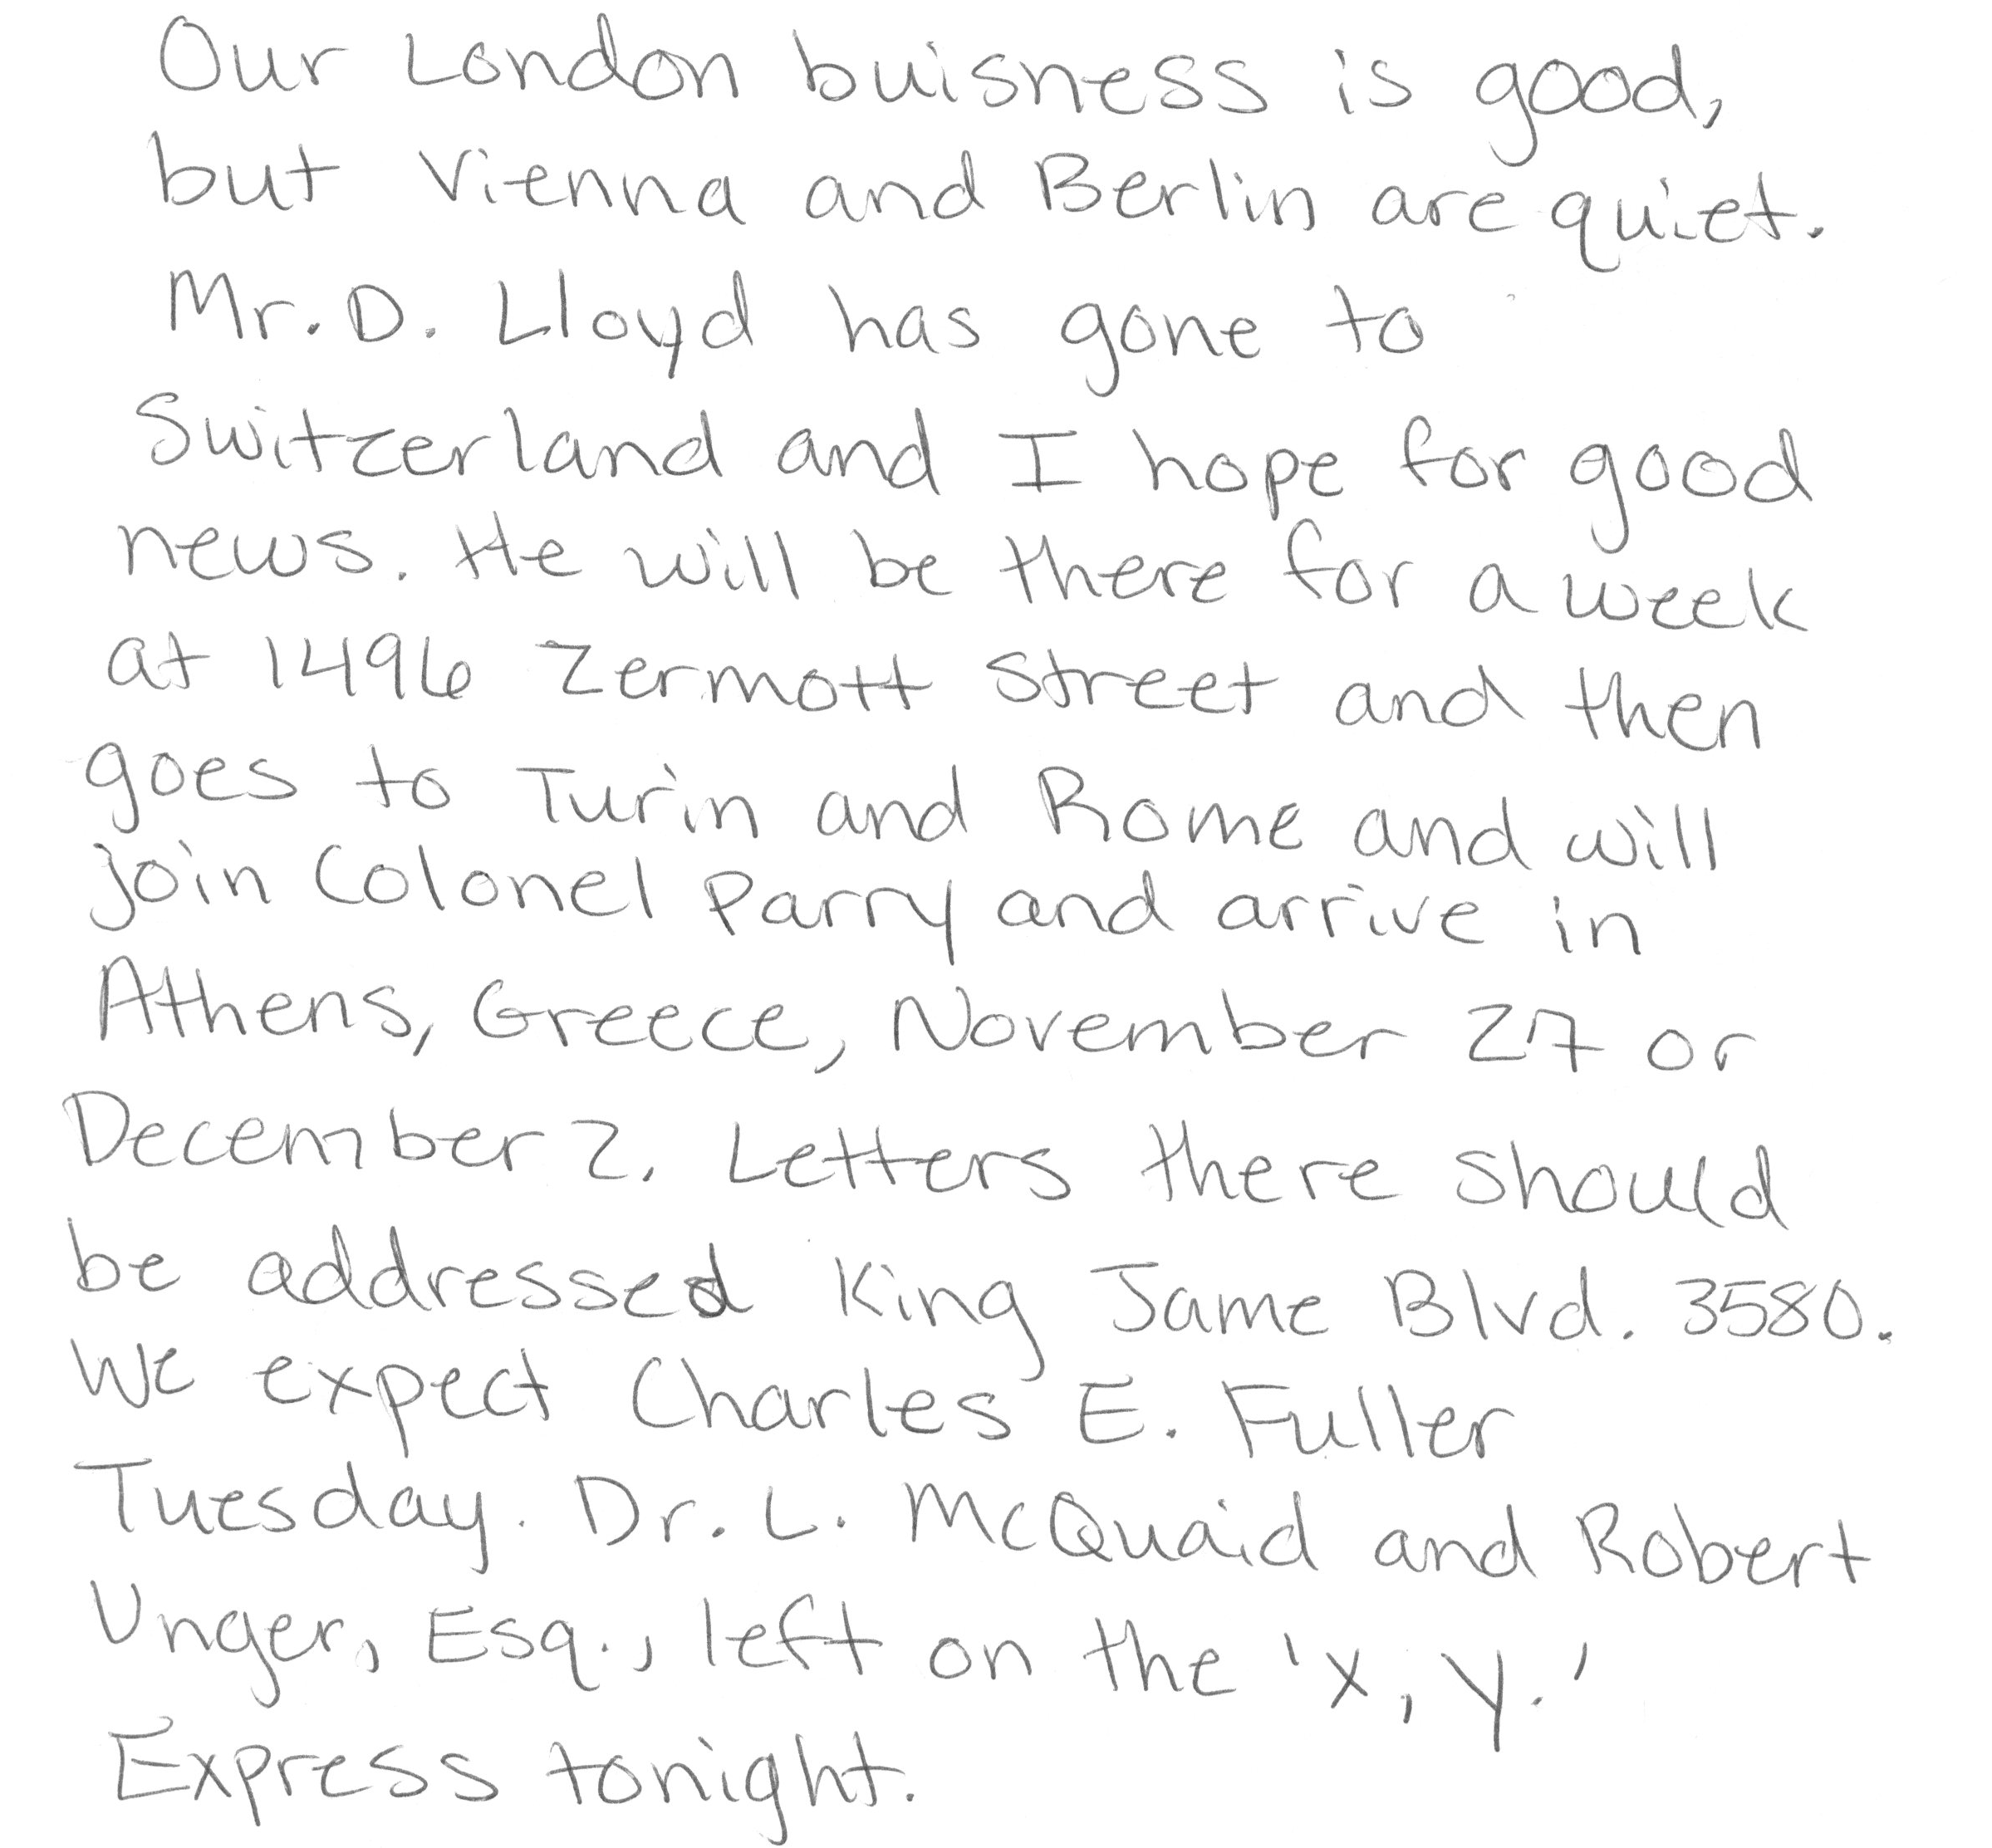 Our London buisness is good,
but Vienna and Berlin are quiet.
Mr. D. Lloyd has gone to
Switzerland and I hope for good
news. He will be there for a week
at 1496 Zermott Street and then
goes to Turin and Rome and will
join Colonel Parry and arrive in
Athens, Greece, November 27 or
December 2. Letters there should
be addressed King Jame Blvd. 3580.
We expect Charles E. Fuller
Tuesday. Dr. L. McQuaid and Robert
Unger, Esq., left on the 'X, Y.'
Express tonight.